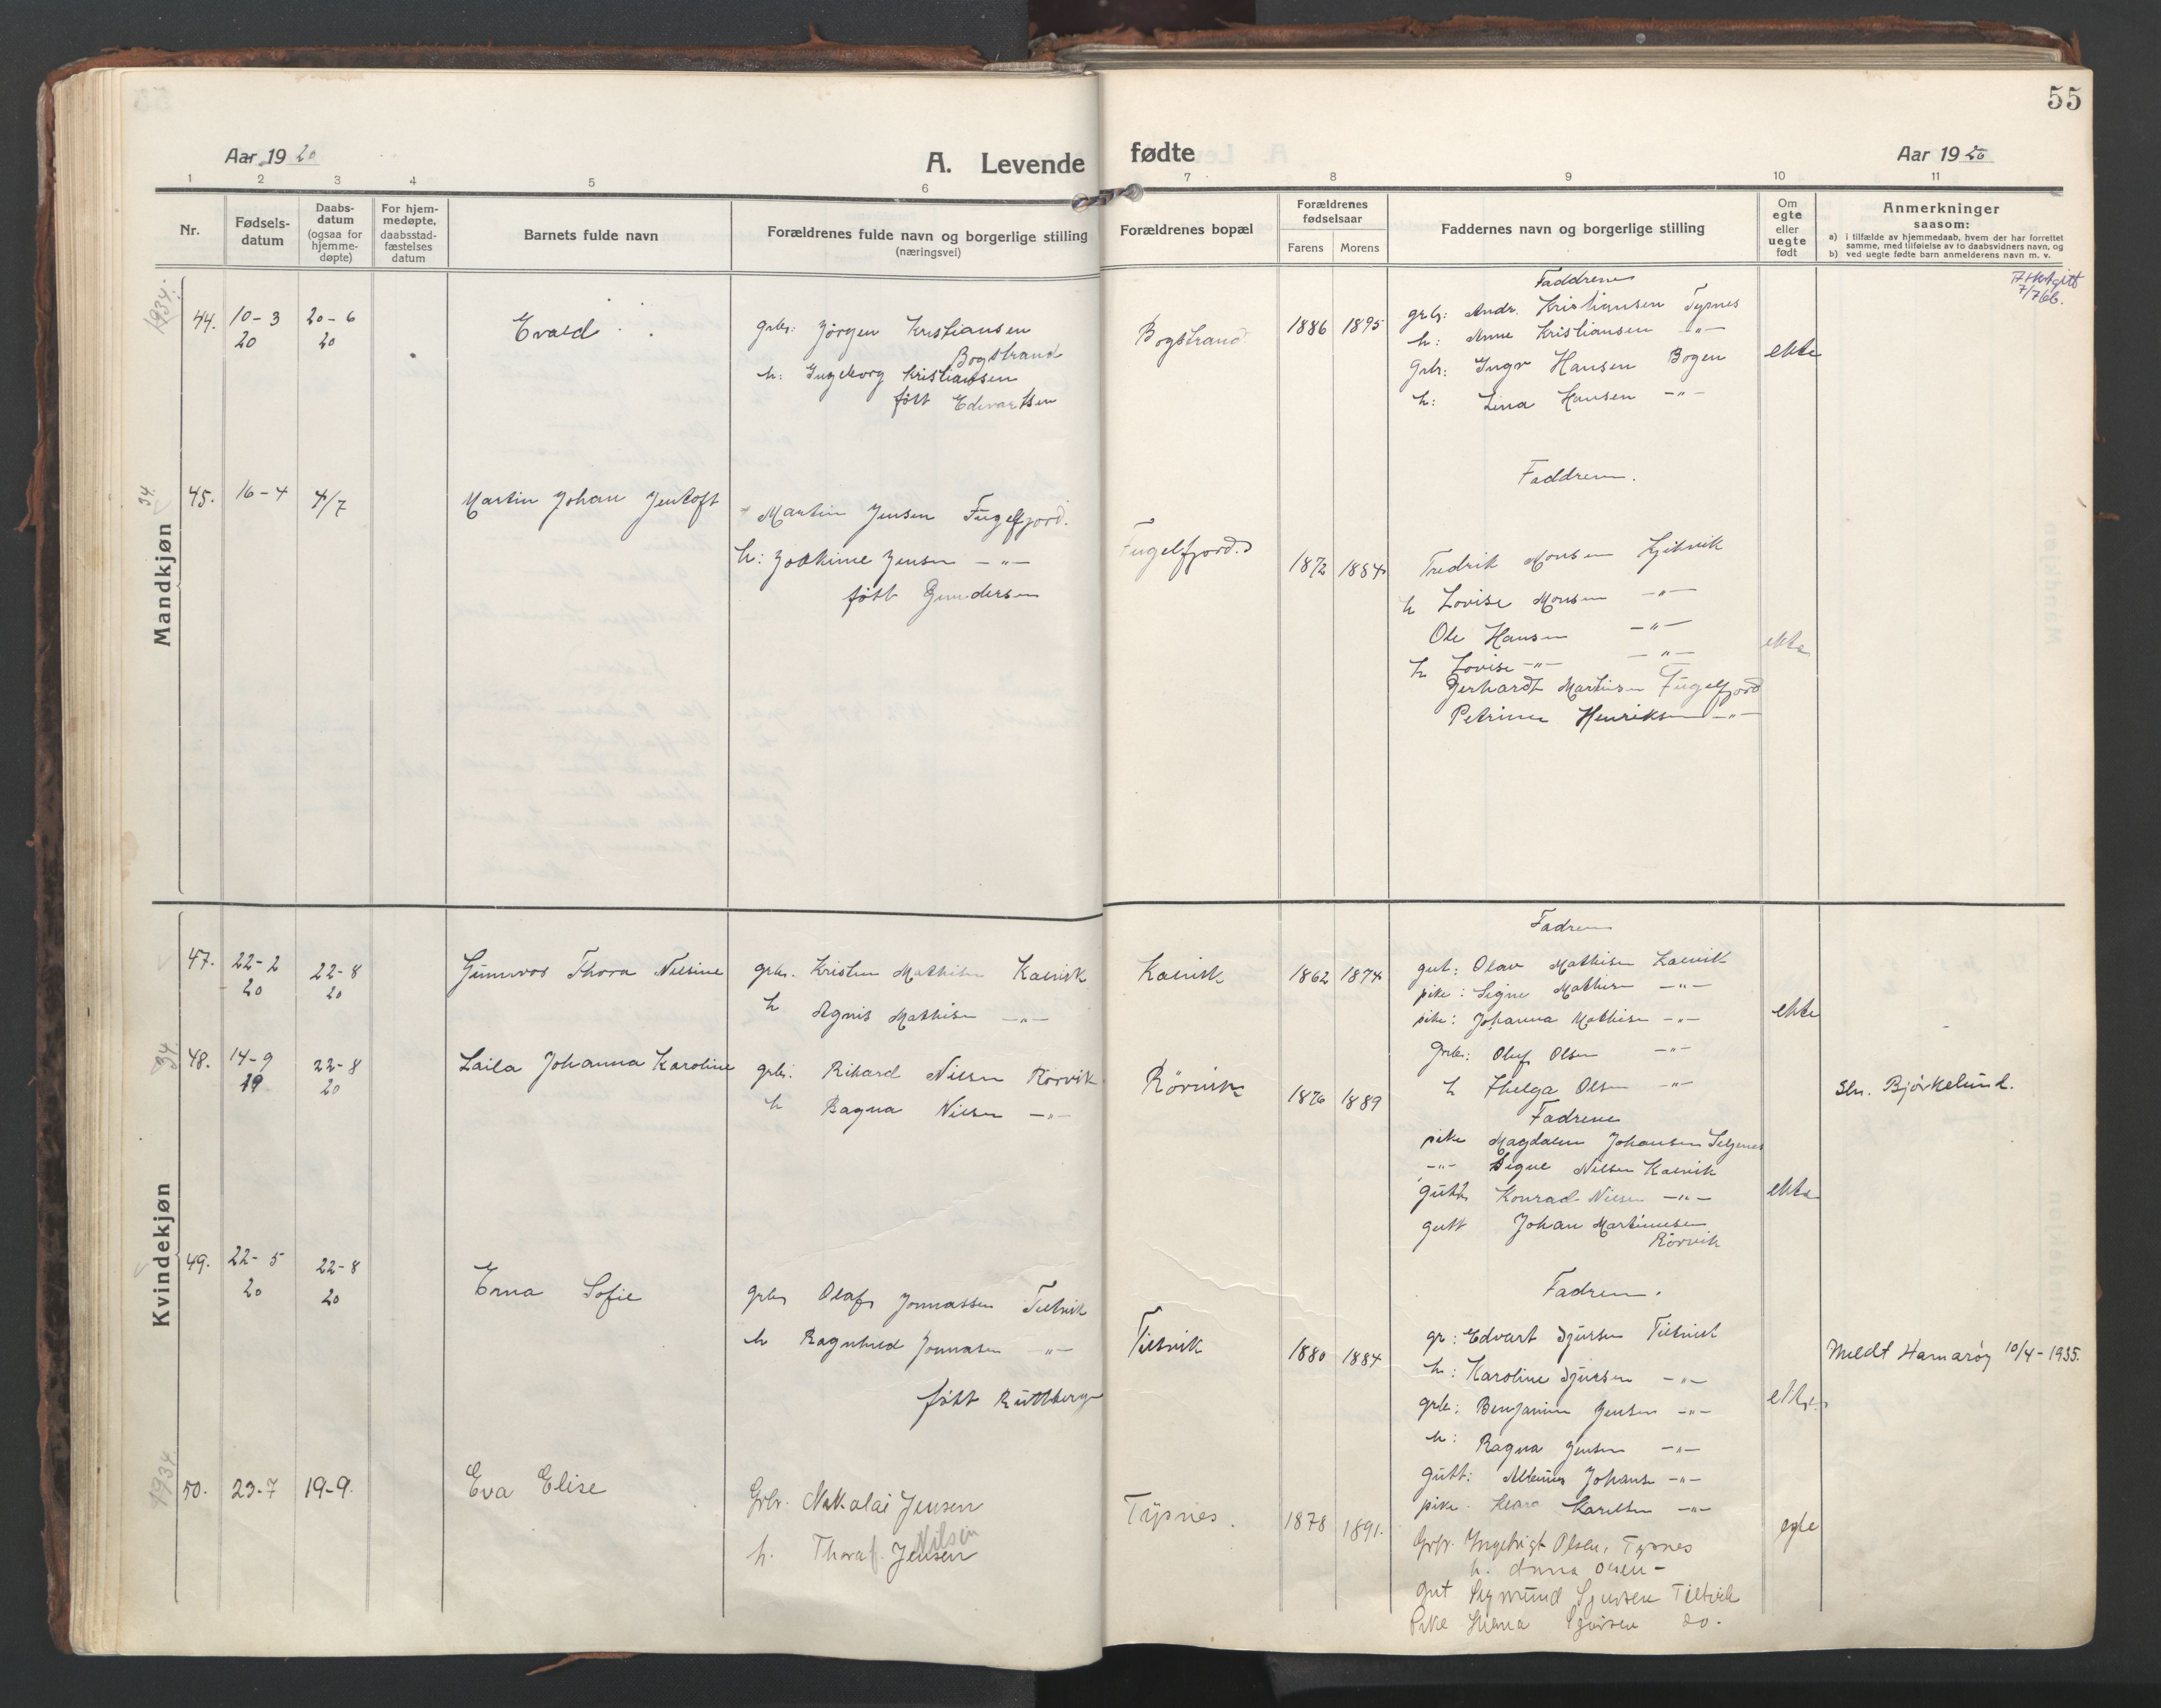 55
Aar 1920
A. Levende fødte
Aar 1920
1 2 3 4 5 6 7 8 9 10 11
Nr.
Fødsels-
datum
Daabs-
datum
(ogsaa for
hjemme-
døpte)
For hjem-
medøpte,
daabsstad-
fæstelses
datum
Barnets fulde navn
Forældrenes fulde navn og borgerlige stilling
(næringsvei)
Forældrenes bopæl
Forældrenes
fødselsaar
Farens Morens
Faddernes navn og borgerlige stilling
Om
egte
eller
uegte
født
Anmerkninger
saasom:
a) i tilfælde av hjemmedaab, hvem der har forrettet
samme, med tilføielse av to daabsvidners navn, og
b) ved uegte fødte barn anmelderens navn m. v.
Mandkjøn
1934.
44. 10-3 20 20-6 20
Evald
grbr: Jørgen Kristiansen
Bogstrand
h: Ingeborg Kristiansen
født Edvartsen
Bogstrand
1886 1895
Faddrene
grbr: Andr. Kristiansen Typnes
h: Anne Kristiansen -"-
Grbr: Ingv Hansen Bogen
h: Lina Hansen -"-
ekte
7/7 66.
34.
45. 16-4 4/7
Martin Johan Jentoft
Martin Jensen Fugelfjord.
h: Joakime Jensen -"-
født Gundersen
Fugelfjord
1872 1884
Faddrene.
Fredrik Monsen
h Lovise Monsen -"-
Ole Hansen -"-
h Lovise -"- -"-
Gerhardt Martinsen Fugelfjord
Petrine Henriksen -"-
ekte
Kvindekjøn
47. 22-2 20 22-8 20
Gunnvor Thora Nilsine
grbr. Kristen Mathisen Kalvik
h Agnis Mathisen -"-
Kalvik
1862 1874
Fadrene
gut: Olav Mathisen Kalvik
pike: Signe Mathisen -"-
pike: Johanna Mathisen -"-
Grbr: Oluf Olsen -"-
h Helga Olsen -"-
ekte
34.
48. 14-9 19 22-8 20
Laila Johanna Karoline
grbr: Rikard Nilsen Rörvik
h Ragna Nilsen -"-
Rörvik
1876 1889
Fadrene
pike Magdalen Johansen
-"- Signe Nilsen Kalvik
gutt Konrad Nilsen -"-
gutt Johan Martinusen
Rörvik
ekte
Bjørkelund.
49. 22-5 20 22-8 20
Erna Sofie
grbr Olaf Jonnassen Tiltvik
h Ragnhild Jonnasen -"-
født Rüttberg
Tiltvik
1880 1884
Fadrene.
gr: Edvart Sjursen Tiltvik
h: Karoline Sjursen -"-
grbr: Benjamin Jensen -"-
h: Ragna Jensen -"-
gutt: Johansen -"-
pike Karelsen -"-
ekte
Meldt Hamarøy 10/4-1935.
1934
50. 23-7 19-9.
Eva Elise
Grbr. Nikolai Jensen
h. Thora f. Nilsen Jensen
Typnes.
1878 1891.
Grbr. Ingebrigt Olsen, Typnes
h. Anna Olsen -
gut Sigmund Sjursen Tiltvik
Pike Sjursen do.
egte